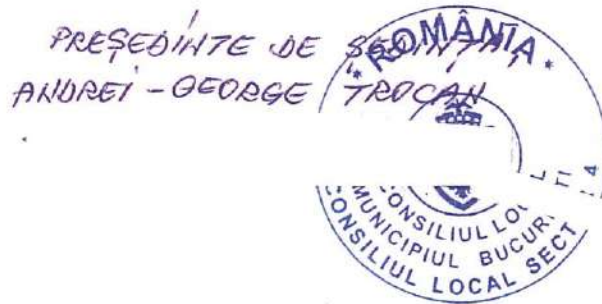 PREȘEDINTE DE ȘEDINȚĂ,
ANDREI-GEORGE TROCAN
* ROMÂNIA *
CONSILIUL LOC
MUNICIPIUL BUCUR
CONSILIUL LOCAL SECT